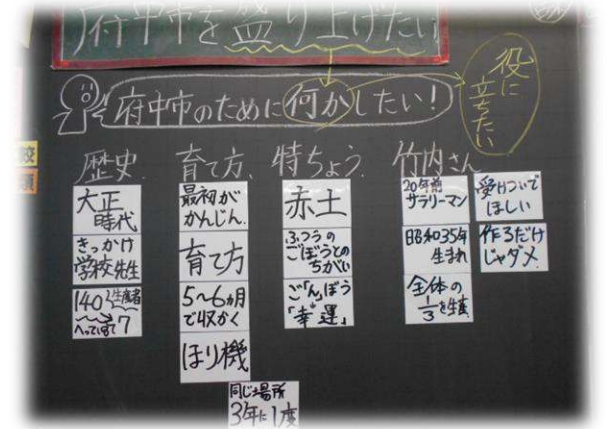 府中市を盛り上げたい
府中市のために何かしたい!
役に
立ちたい
歴史
大正
時代
きっかけ
学校先生
140
生産者
へって
7
育て方
最初が
かんじん
育て方
5~6ヵ月
で収かく
ほり機
同じ場所
3年に1度
特ちょう
赤土
ふつうの
ごぼうとの
ちがい
ご「ん」ぼう
「幸運」
竹内さん
20年前
サラリーマン
昭和35年
生まれ
全体の
1/3を生産
受けついで
ほしい
作るだけ
じゃダメ